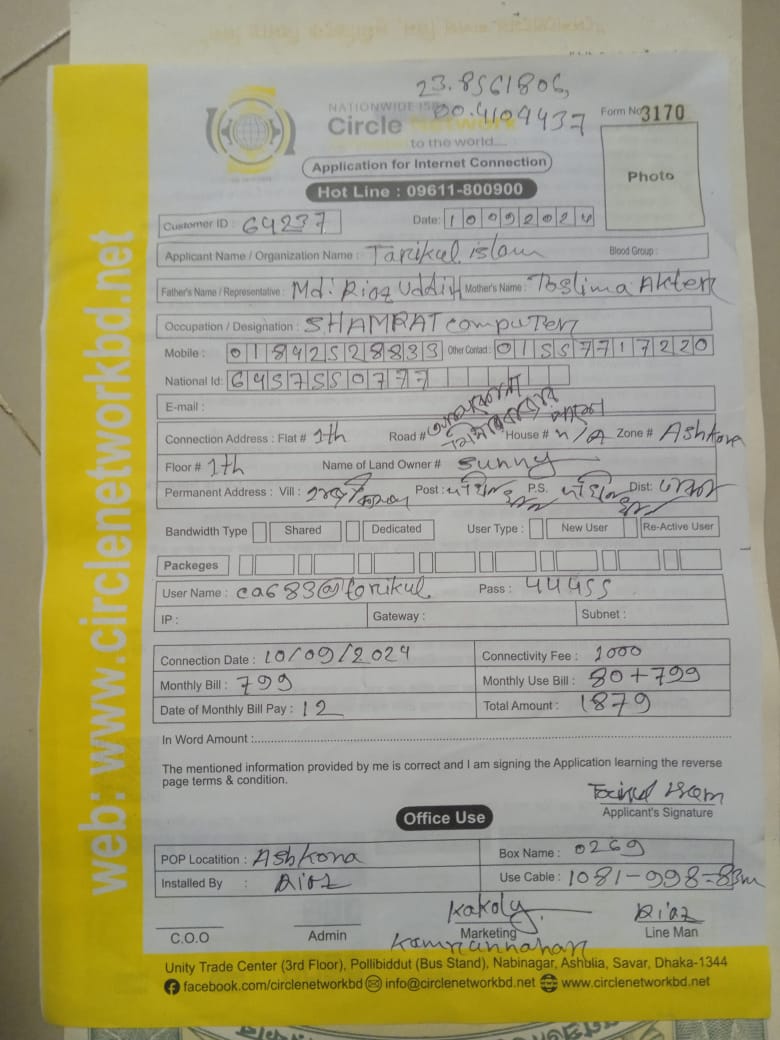 23.8561806,
NATIONWIDE ISP
90.4109437
Form No 3170
Circle Network
to the world....
Application for Internet Connection
Photo
Hot Line : 09611-800900
Customer ID : 64237 Date: 10092024
Applicant Name / Organization Name : Tarikul islam Blood Group :
Father's Name / Representative : Md: Riaz Uddin Mother's Name : Toslima Akter
Occupation / Designation : SHAMRAT computer
Mobile : 01842528833 Other Contact : 01557717220
National Id: 6457550777
E-mail :
Connection Address : Flat # 1th Road # House # n/A Zone # Ashkona
Floor # 1th Name of Land Owner # Sunny
Permanent Address : Vill : Post : P.S. Dist:
Bandwidth Type Shared Dedicated User Type : New User Re-Active User
Packeges
User Name : ca683@tarikul Pass : 44455
IP : Gateway : Subnet :
Connection Date : 10/09/2024 Connectivity Fee : 1000
Monthly Bill : 799 Monthly Use Bill : 80+799
Date of Monthly Bill Pay : 12 Total Amount : 1879
In Word Amount :
The mentioned information provided by me is correct and I am signing the Application learning the reverse
page terms & condition.
Applicant's Signature
Office Use
POP Locatition : Ashkona Box Name : 0269
Installed By : Riaz Use Cable : 1081-998=83m
Kakoly Riaz
C.O.O Admin Marketing Line Man
Kamrunnahar
Unity Trade Center (3rd Floor), Pollibiddut (Bus Stand), Nabinagar, Ashulia, Savar, Dhaka-1344
facebook.com/circlenetworkbd info@circlenetworkbd.net www.circlenetworkbd.net
web: www.circlenetworkbd.net